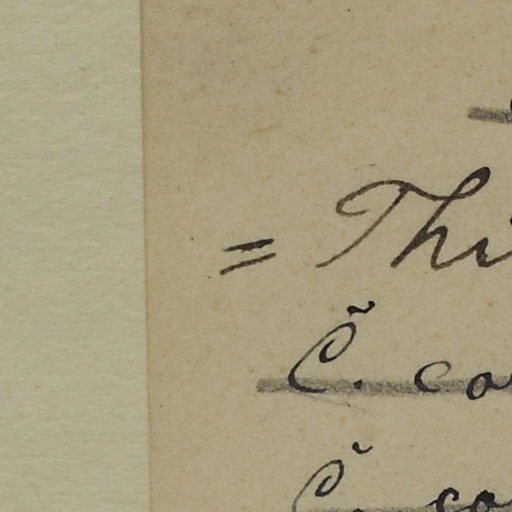 = Thi
C̆. co
C̆. co